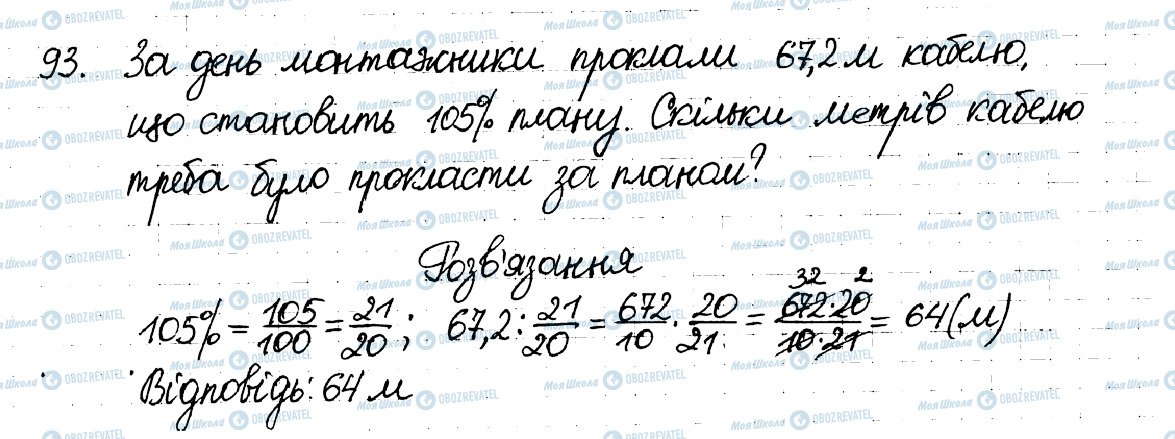 93. За день монтажники проклали 67,2 м кабелю,
що становить 105% плану. Скільки метрів кабелю
треба було прокласти за планом?
Розв'язання
105% = 105/100 = 21/20; 67,2 : 21/20 = 672/10 · 20/21 = 672·20/10·21 = 64 (м)
32 2
Відповідь: 64 м
МояШкола OBOZREVATEL